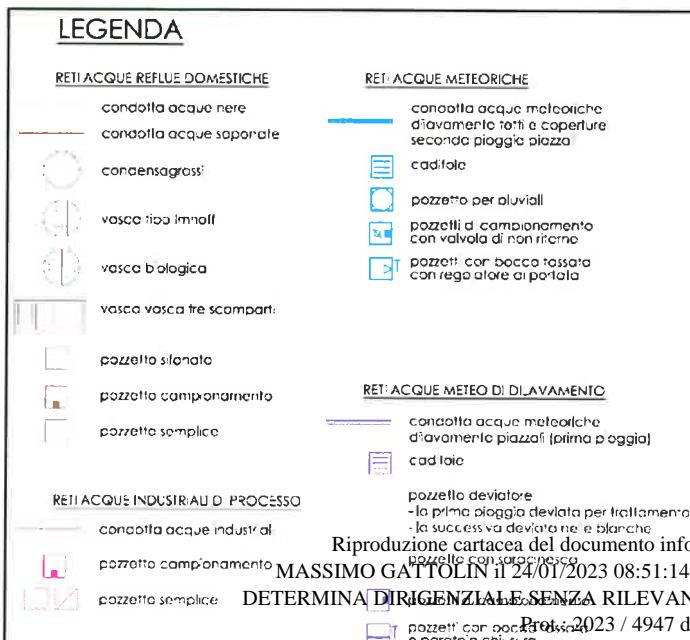 LEGENDA
RETI ACQUE REFLUE DOMESTICHE
condotta acque nere
condotta acque saponate
condensagrassi
vasca tipo Imhoff
vasca biologica
vasca vasca tre scomparti
pozzetto sifonato
pozzetto campionamento
pozzetto semplice
RETI ACQUE INDUSTRIALI DI PROCESSO
condotta acque industriali
pozzetto campionamento
pozzetto semplice
RETI ACQUE METEORICHE
condotta acque meteoriche
dilavamento tetti e coperture
seconda pioggia piazzali
caditoie
pozzetto per pluviali
pozzetti di campionamento
con valvola di non ritorno
pozzetti con bocca tassata
con regolatore di portata
RETI ACQUE METEO DI DILAVAMENTO
condotta acque meteoriche
dilavamento piazzali (prima pioggia)
caditoie
pozzetto deviatore
- la prima pioggia deviata per trattamento
- la successiva deviata nelle bianche
pozzetto con saracinesca
pozzetti con bocca tassata
Riproduzione cartacea del documento info
MASSIMO GATTOLIN il 24/01/2023 08:51:14
DETERMINA DIRIGENZIALE SENZA RILEVAN
Prot.: 2023 / 4947 d